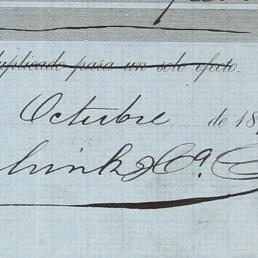 duplicado para un solo efecto.
Octubre de 18
hink & Cª.